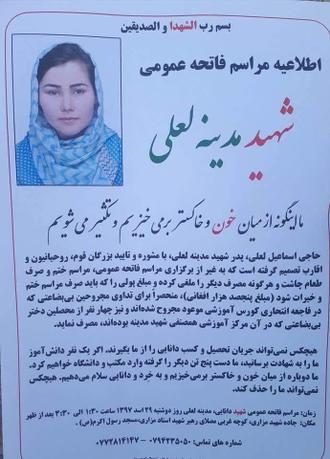 بسم رب الشهدا و الصدیقین
اطلاعیه مراسم فاتحه عمومی
شهید مدینه لعلی
ما اینگونه از میان خون و خاکستر برمی خیزیم و تکثیر می شویم
حاجی اسماعیل لعلی، پدر شهید مدینه لعلی، با مشوره و تایید بزرگان قوم، روحانیون و
اقارب تصمیم گرفته است که به غیر از برگزاری مراسم فاتحه عمومی، مراسم ختم و صرف
طعام چاشت و هرگونه مصرف دیگر را ملغی کرده و مبلغ پولی را که باید صرف مراسم ختم
و خیرات شود (مبلغ پنجصد هزار افغانی)، منحصرا برای تداوی مجروحین بی‌بضاعتی که
در فاجعه انتحاری کورس آموزشی موعود مجروح شده‌اند و نیز چهار نفر از محصلین دختر
بی‌بضاعتی که در آن مرکز آموزشی همصنفی شهید مدینه بوده‌اند، مصرف نماید.
هیچکس نمی‌تواند جریان تحصیل و کسب دانایی را از ما بگیرند. اگر یک نفر دانش‌آموز
ما را به شهادت برسانید، ما دست پنج تن دیگر را گرفته وارد مکتب و دانشگاه خواهیم کرد.
ما دوباره از میان خون و خاکستر برمی‌خیزیم و به خرد و دانایی سلام می‌دهیم. هیچکس
نمی‌تواند ما را حذف کند.
زمان: مراسم فاتحه عمومی شهید دانایی، مدینه لعلی روز دوشنبه ۲۹ اسد ۱۳۹۷ ساعت ۱:۳۰ الی ۳:۳۰ بعد از ظهر
مکان: جاده شهید مزاری، کوچه غربی مصلای رهبر شهید استاد مزاری، مسجد رسول اکرم(ص).
شماره های تماس: ۰۷۹۴۲۳۵۰۵۰ - ۰۷۷۲۸۱۴۱۴۷